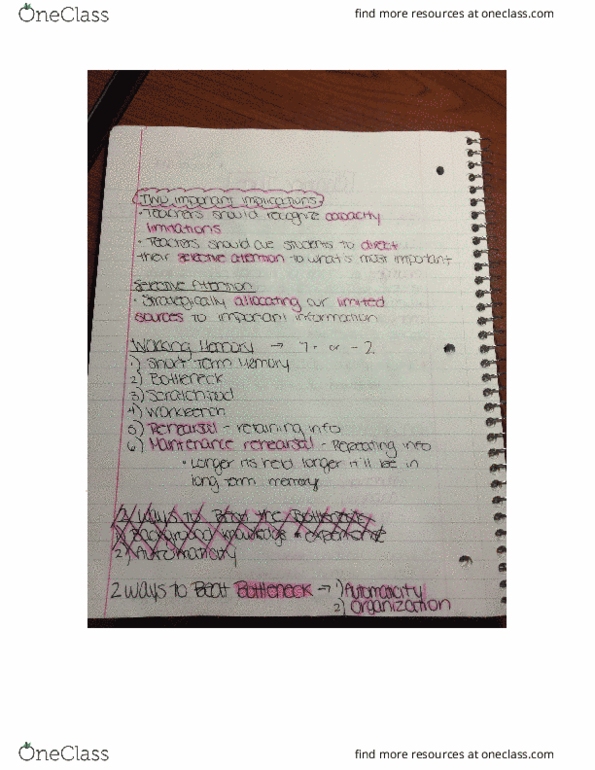 OneClass
find more resources at oneclass.com
Two important implications
• Teachers should recognize capacity
limitations
• Teachers should cue students to direct
their selective attention to what's most important
Selective Attention
• Strategically allocating our limited
sources to important information
Working Memory → 7+ or - 2
1) Short Term Memory
2) Bottleneck
3) Scratchpad
4) Workbench
5) Rehearsal - retaining info
6) Maintenance rehearsal - Repeating info
• Longer its held longer it'll be in
long term memory
2 ways to Beat the Bottleneck
1) Background knowledge + experience
2) Automaticity
2 ways to Beat Bottleneck → 1) Automaticity
2) Organization
OneClass
find more resources at oneclass.com